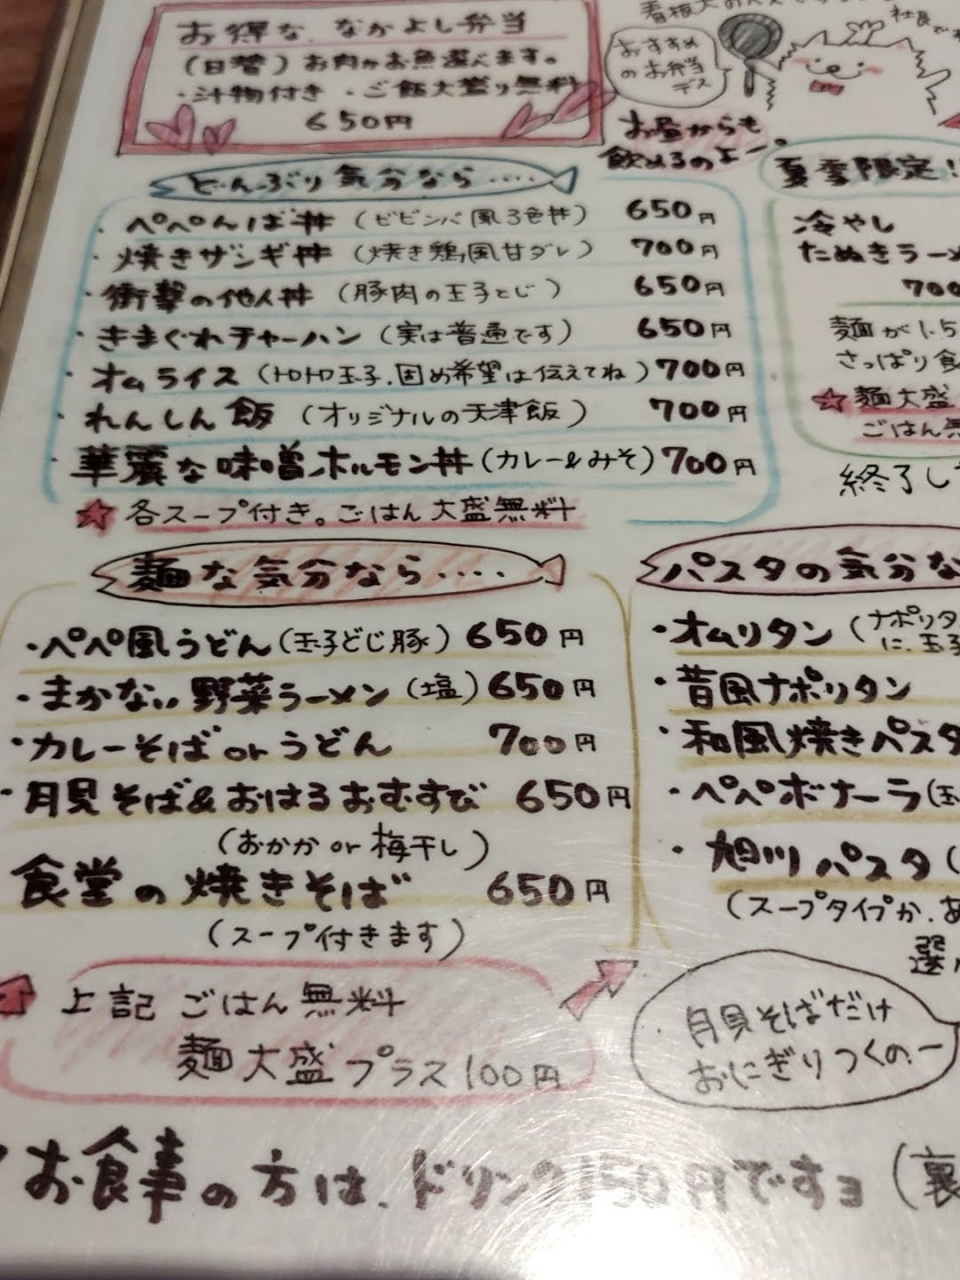 お得な なかよし弁当
(日替) お肉かお魚選べます。
・汁物付き ・ご飯大盛り無料
650円
おすすめ
のお弁当
デス
お昼からも
飲めるのよー。
どんぶり気分なら‥‥
・ぺぺんば丼 (ビビンバ風3色丼) 650円
・焼きザンギ丼 (焼き鶏風甘ダレ) 700円
・衝撃の他人丼 (豚肉の玉子とじ) 650円
・きまぐれチャーハン (実は普通です) 650円
・オムライス (トロトロ玉子.固め希望は伝えてね) 700円
・れんしん飯 (オリジナルの天津飯) 700円
・華麗な味噌ホルモン丼 (カレー&みそ) 700円
☆各スープ付き。ごはん大盛無料
夏季限定!!
冷やし
たぬきラーメ
700
麺が1.5
さっぱり食
☆麺大盛
ごはん無
終了し
麺な気分なら‥‥
・ペペ風うどん (玉子どじ豚) 650円
・まかない野菜ラーメン (塩) 650円
・カレーそばorうどん 700円
・月見そば&おはるおむすび 650円
(おかか or 梅干し)
食堂の焼きそば 650円
(スープ付きます)
上記 ごはん無料
麺大盛プラス100円
パスタの気分な
・オムリタン (ナポリタ
に.玉子
・昔風ナポリタン
・和風焼きパスタ
・ペペボナーラ (玉
・旭川パスタ (
(スープタイプか.あ
選
月見そばだけ
おにぎりつくのー
お食事の方は、ドリンク150円ですヨ (裏